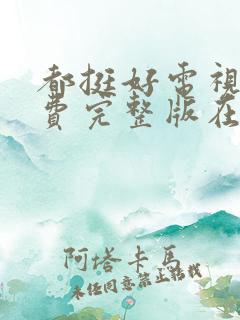 都挺好電視
費完整版在
阿塔卡馬
未經同意禁止轉載